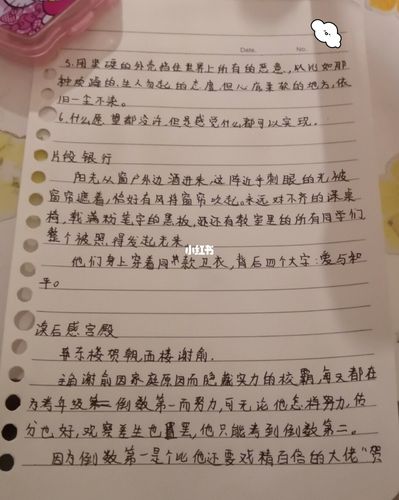 Date. No. 3.
5.用坚硬的外壳挡住世界上所有的恶意，从比如那
种疾的、生人勿近的态度但心底柔软的地方，依
旧一尘不染。
6.什么愿望都没许，但是感觉什么都可以实现。
片段银行
阳光从窗户外边洒进来，这阵近乎刺眼的光被
窗帘遮着，恰好有风将窗帘吹起。永远对不齐的课桌
椅，载满粉笔字的黑板，还有教室里的所有同学们
整个被照得发起光来。
他们身上穿着同款卫衣，背后四个大字：爱与和
平。
小红书
读后感宫殿
草东楼贺朝，西楼谢俞。
主谢俞因家庭原因而隐藏实力的校霸，每又都在
为考年级倒数第一而努力，可无论他怎样努力，估
分也好，观察差生也罢，他只能考到倒数第二。
因为倒数第一是个比他还要戏精百倍的大佬"贺